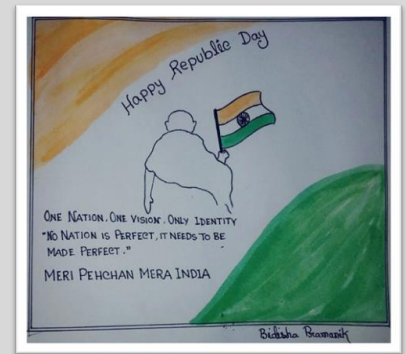 Happy Republic Day
ONE NATION, ONE VISION, ONLY IDENTITY
"NO NATION IS PERFECT, IT NEEDS TO BE
MADE PERFECT."
MERI PEHCHAN MERA INDIA
Bidisha Bramanik